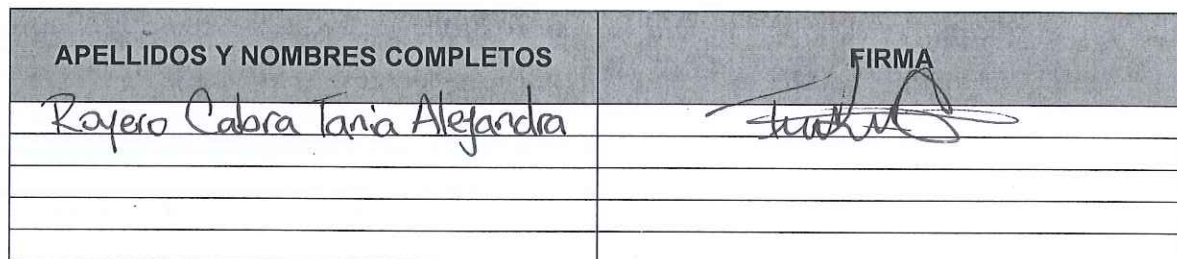 APELLIDOS Y NOMBRES COMPLETOS
FIRMA
Royero Cabra Tania Alejandra